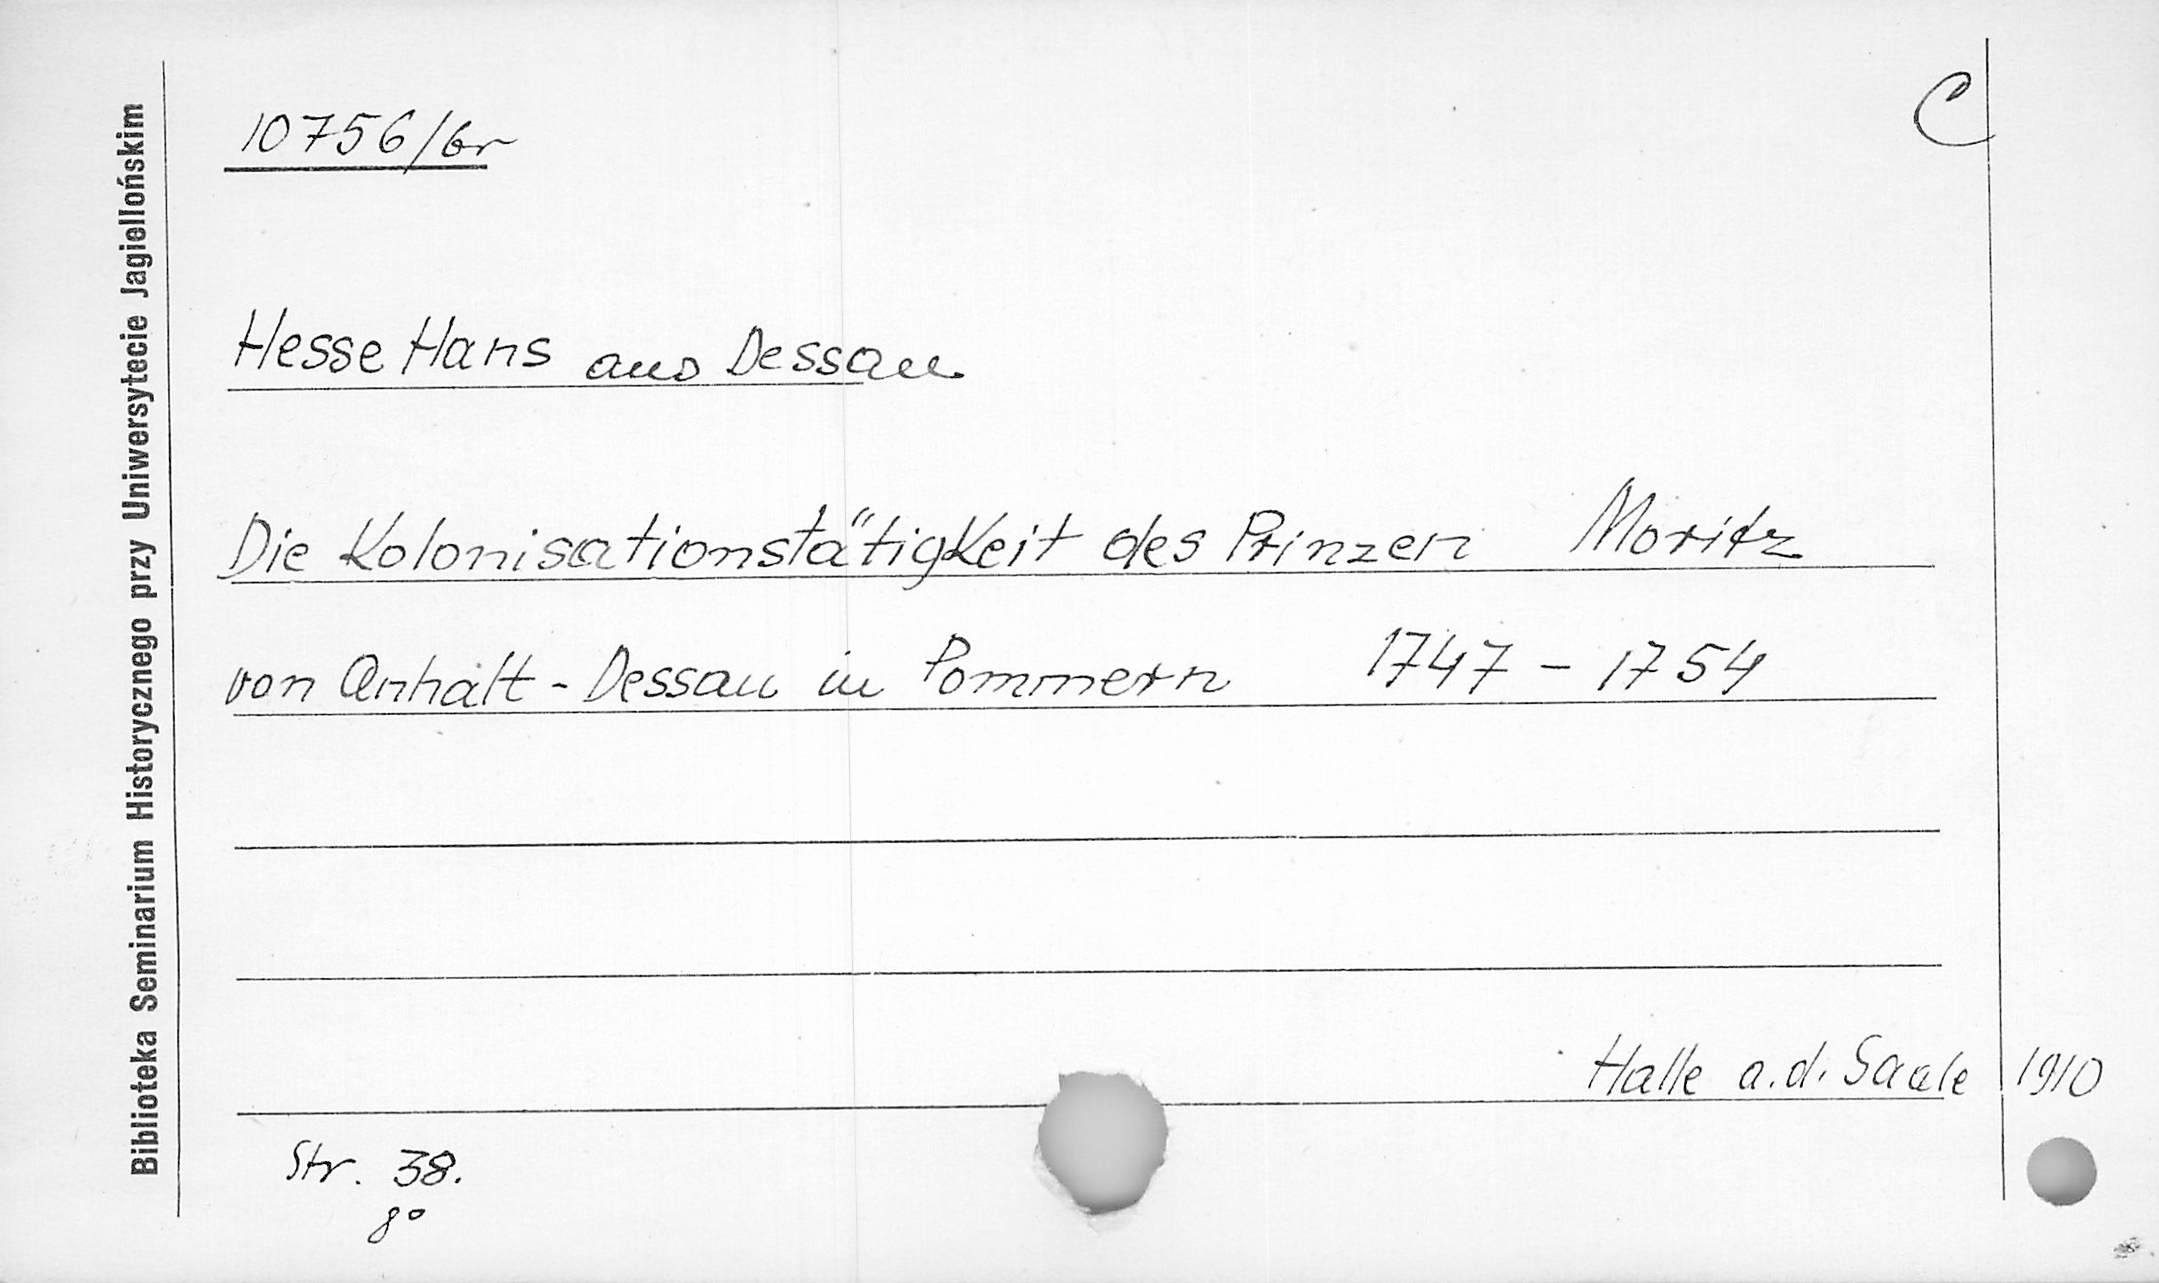 10756/br
C
Hesse Hans aus Dessau
Die Kolonisationstätigkeit des Prinzen Moritz
von Anhalt-Dessau in Pommern 1747 - 1754
Halle a.d. Saale 1910
Str. 38.
8°
Biblioteka Seminarium Historycznego przy Uniwersytecie Jagiellońskim